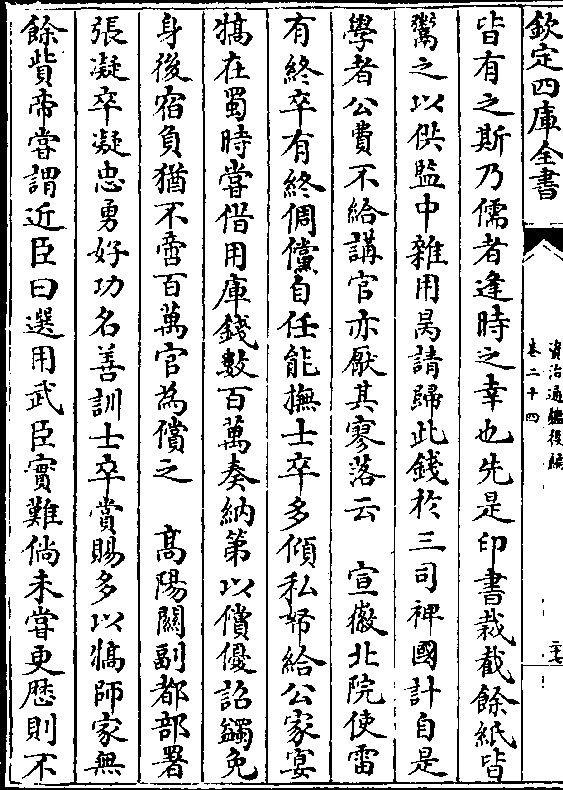 欽定四庫全書
資治通鑑後編
卷二十四
皆有之斯乃儒者逢時之幸也先是印書裁截餘紙皆
鬻之以供監中雜用昺請歸此錢於三司裨國計自是
學者公費不給講官亦厭其寥落云　宣徽北院使雷
有終卒有終倜儻自任能撫士卒多傾私帑給公家宴
犒在蜀時嘗借用庫錢數百萬奏納第以償優詔蠲免
身後宿負猶不啻百萬官為償之　髙陽關副都部署
張凝卒凝忠勇好功名善訓士卒賞賜多以犒師家無
餘貲帝嘗謂近臣曰選用武臣實難倘未嘗更歴則不